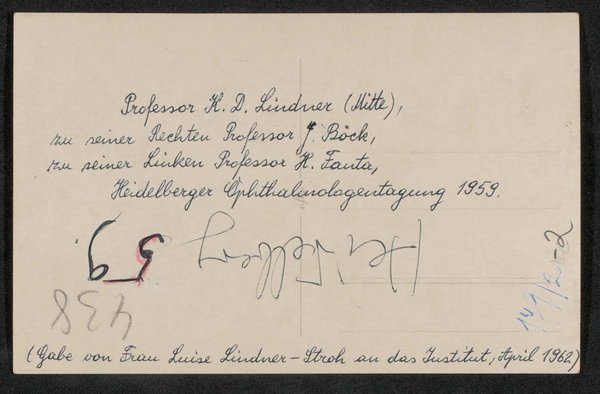 Professor K. D. Lindner (Mitte),
zu seiner Rechten Professor J. Böck,
zu seiner Linken Professor H. Fanta,
Heidelberger Ophthalmologentagung 1959.
59
438
(Gabe von Frau Luise Lindner-Stroh an das Institut, April 1962)